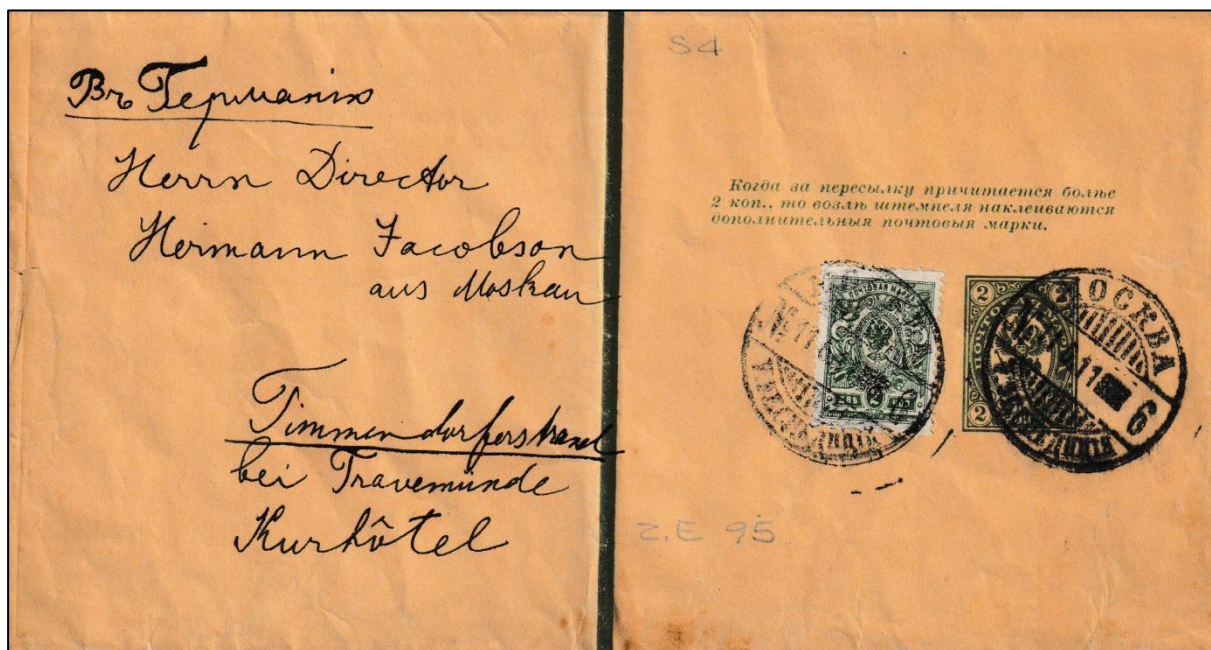 Въ Германію
Herrn Director
Hermann Jacobson
aus Moskau
Timmendorferstrand
bei Travemünde
Kurhôtel
S4
Когда за пересылку причитается болѣе
2 коп., то возлѣ штемпеля наклеиваются
дополнительныя почтовыя марки.
ПОЧТОВАЯ МАРКА
2 2
2 2
МОСКВА
11
6
Z.E 95